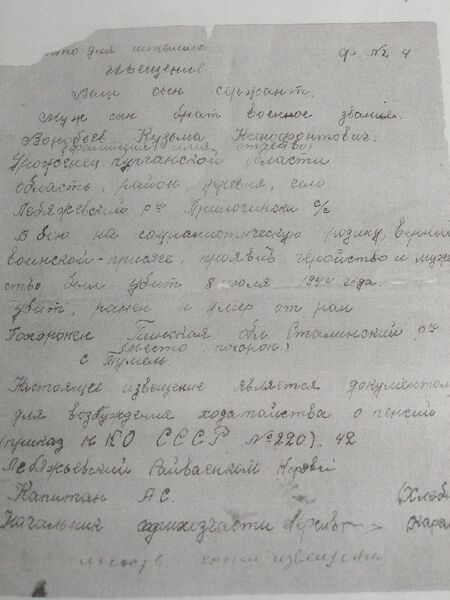 для штампа ф. № 4
извещение
Ваш сын сержант.
муж сын брат военное звания.
Воробьев Кузьма Ксенофонтович.
(фамилия имя отчество)
Уроженец Курганской области
область, район, деревня, село
Лебяжевский р-н с/с
В бою на социалистическую родину, верный
воинской-присяге, проявив геройство и муже
ство был убит 8 июля 1944 года.
убит, ранен и умер от ран
Похоронен Пинская обл. Сталинский р-н
(место похорон.)
с.
Настоящее извещение является документом
для возбуждения ходатайства о пенсии
(приказ НКО СССР № 220). 42
Лебяжьевский
Капитан А.С. (Хлеб
Начальник
копия извещения